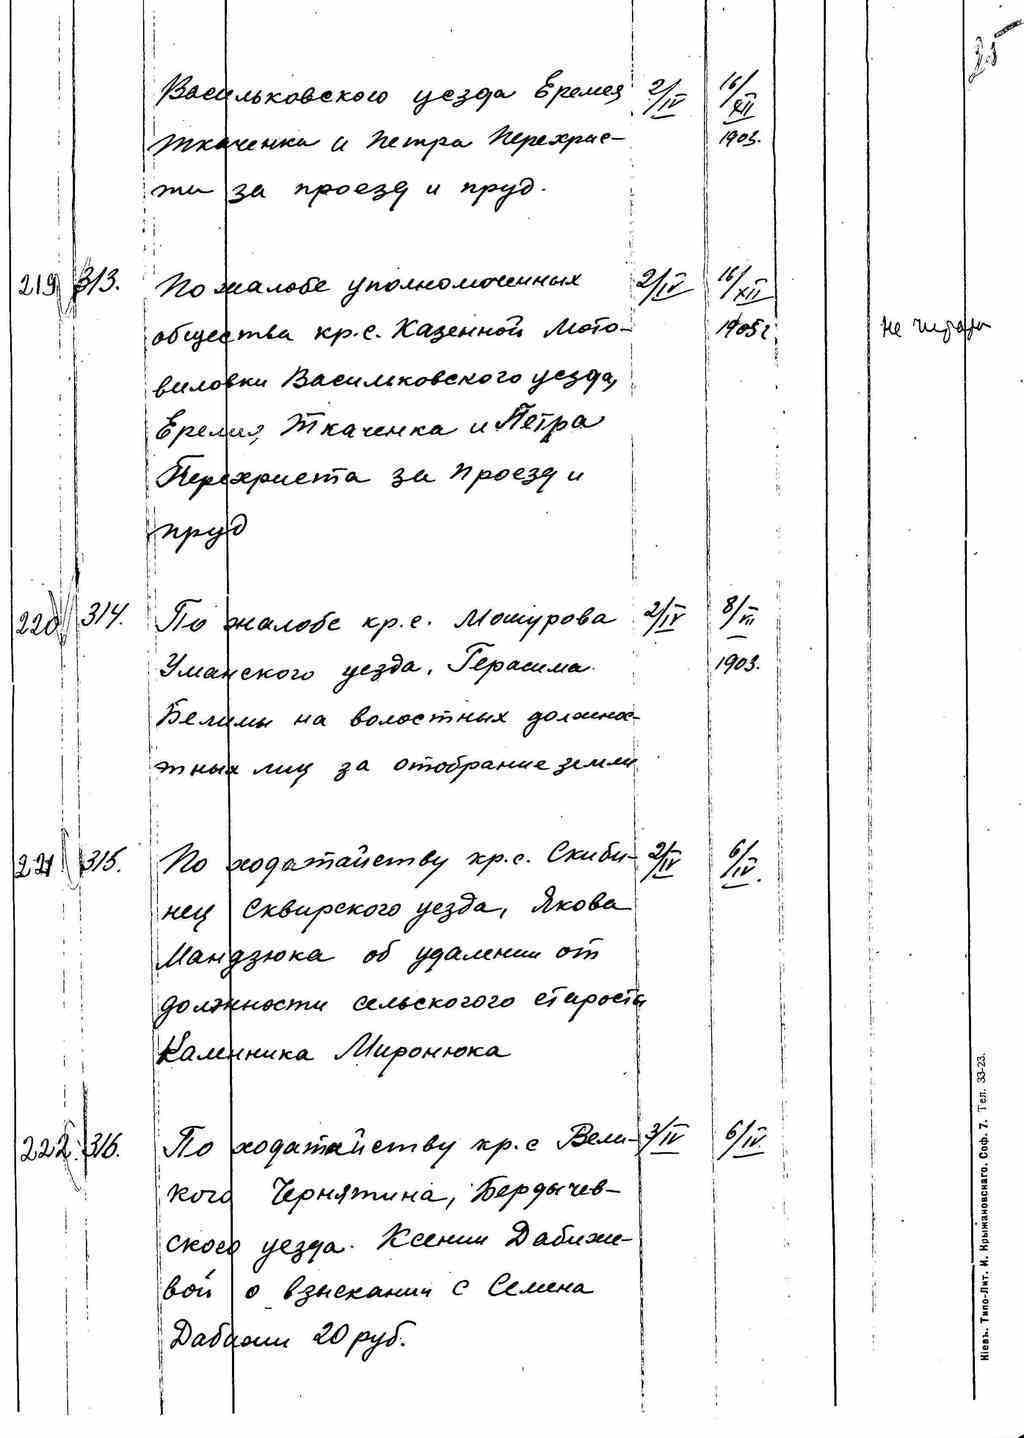 35
Васильковского уезда Еремея 2/IV 16/XII
Ткаченка и Петра Перехрис- 1903.
ти за проезд и пруд.
219 313. По жалобе уполномоченных 2/IV 16/XII
общества кр. с. Казенной Мото- 1905 г. не читали
виловки Васильковского уезда,
Еремия, Ткаченка и Петра
Перехриста за проезд и
пруд
220 314. По жалобе кр. с. Мошурова 2/IV 8/VII
Уманского уезда, Герасима 1903.
Белимы на волостных должнос-
тных лиц за отобрание земли
221 315. По ходатайству кр. с. Скиби- 2/IV 6/IV.
нец Сквирского уезда, Якова
Мандзюка об удалении от
должности сельскогого старосты
Каленника Миронюка
222 316. По ходатайству кр. с Вели- 3/IV 6/IV.
кого Чернятина, Бердычев-
ского уезда. Ксении Дабижи-
вой о взыскании с Семена
Дабижи 20 руб.
Кіевъ. Типо-Лит. И. Крыжановскаго. Соф. 7. Тел. 33-23.